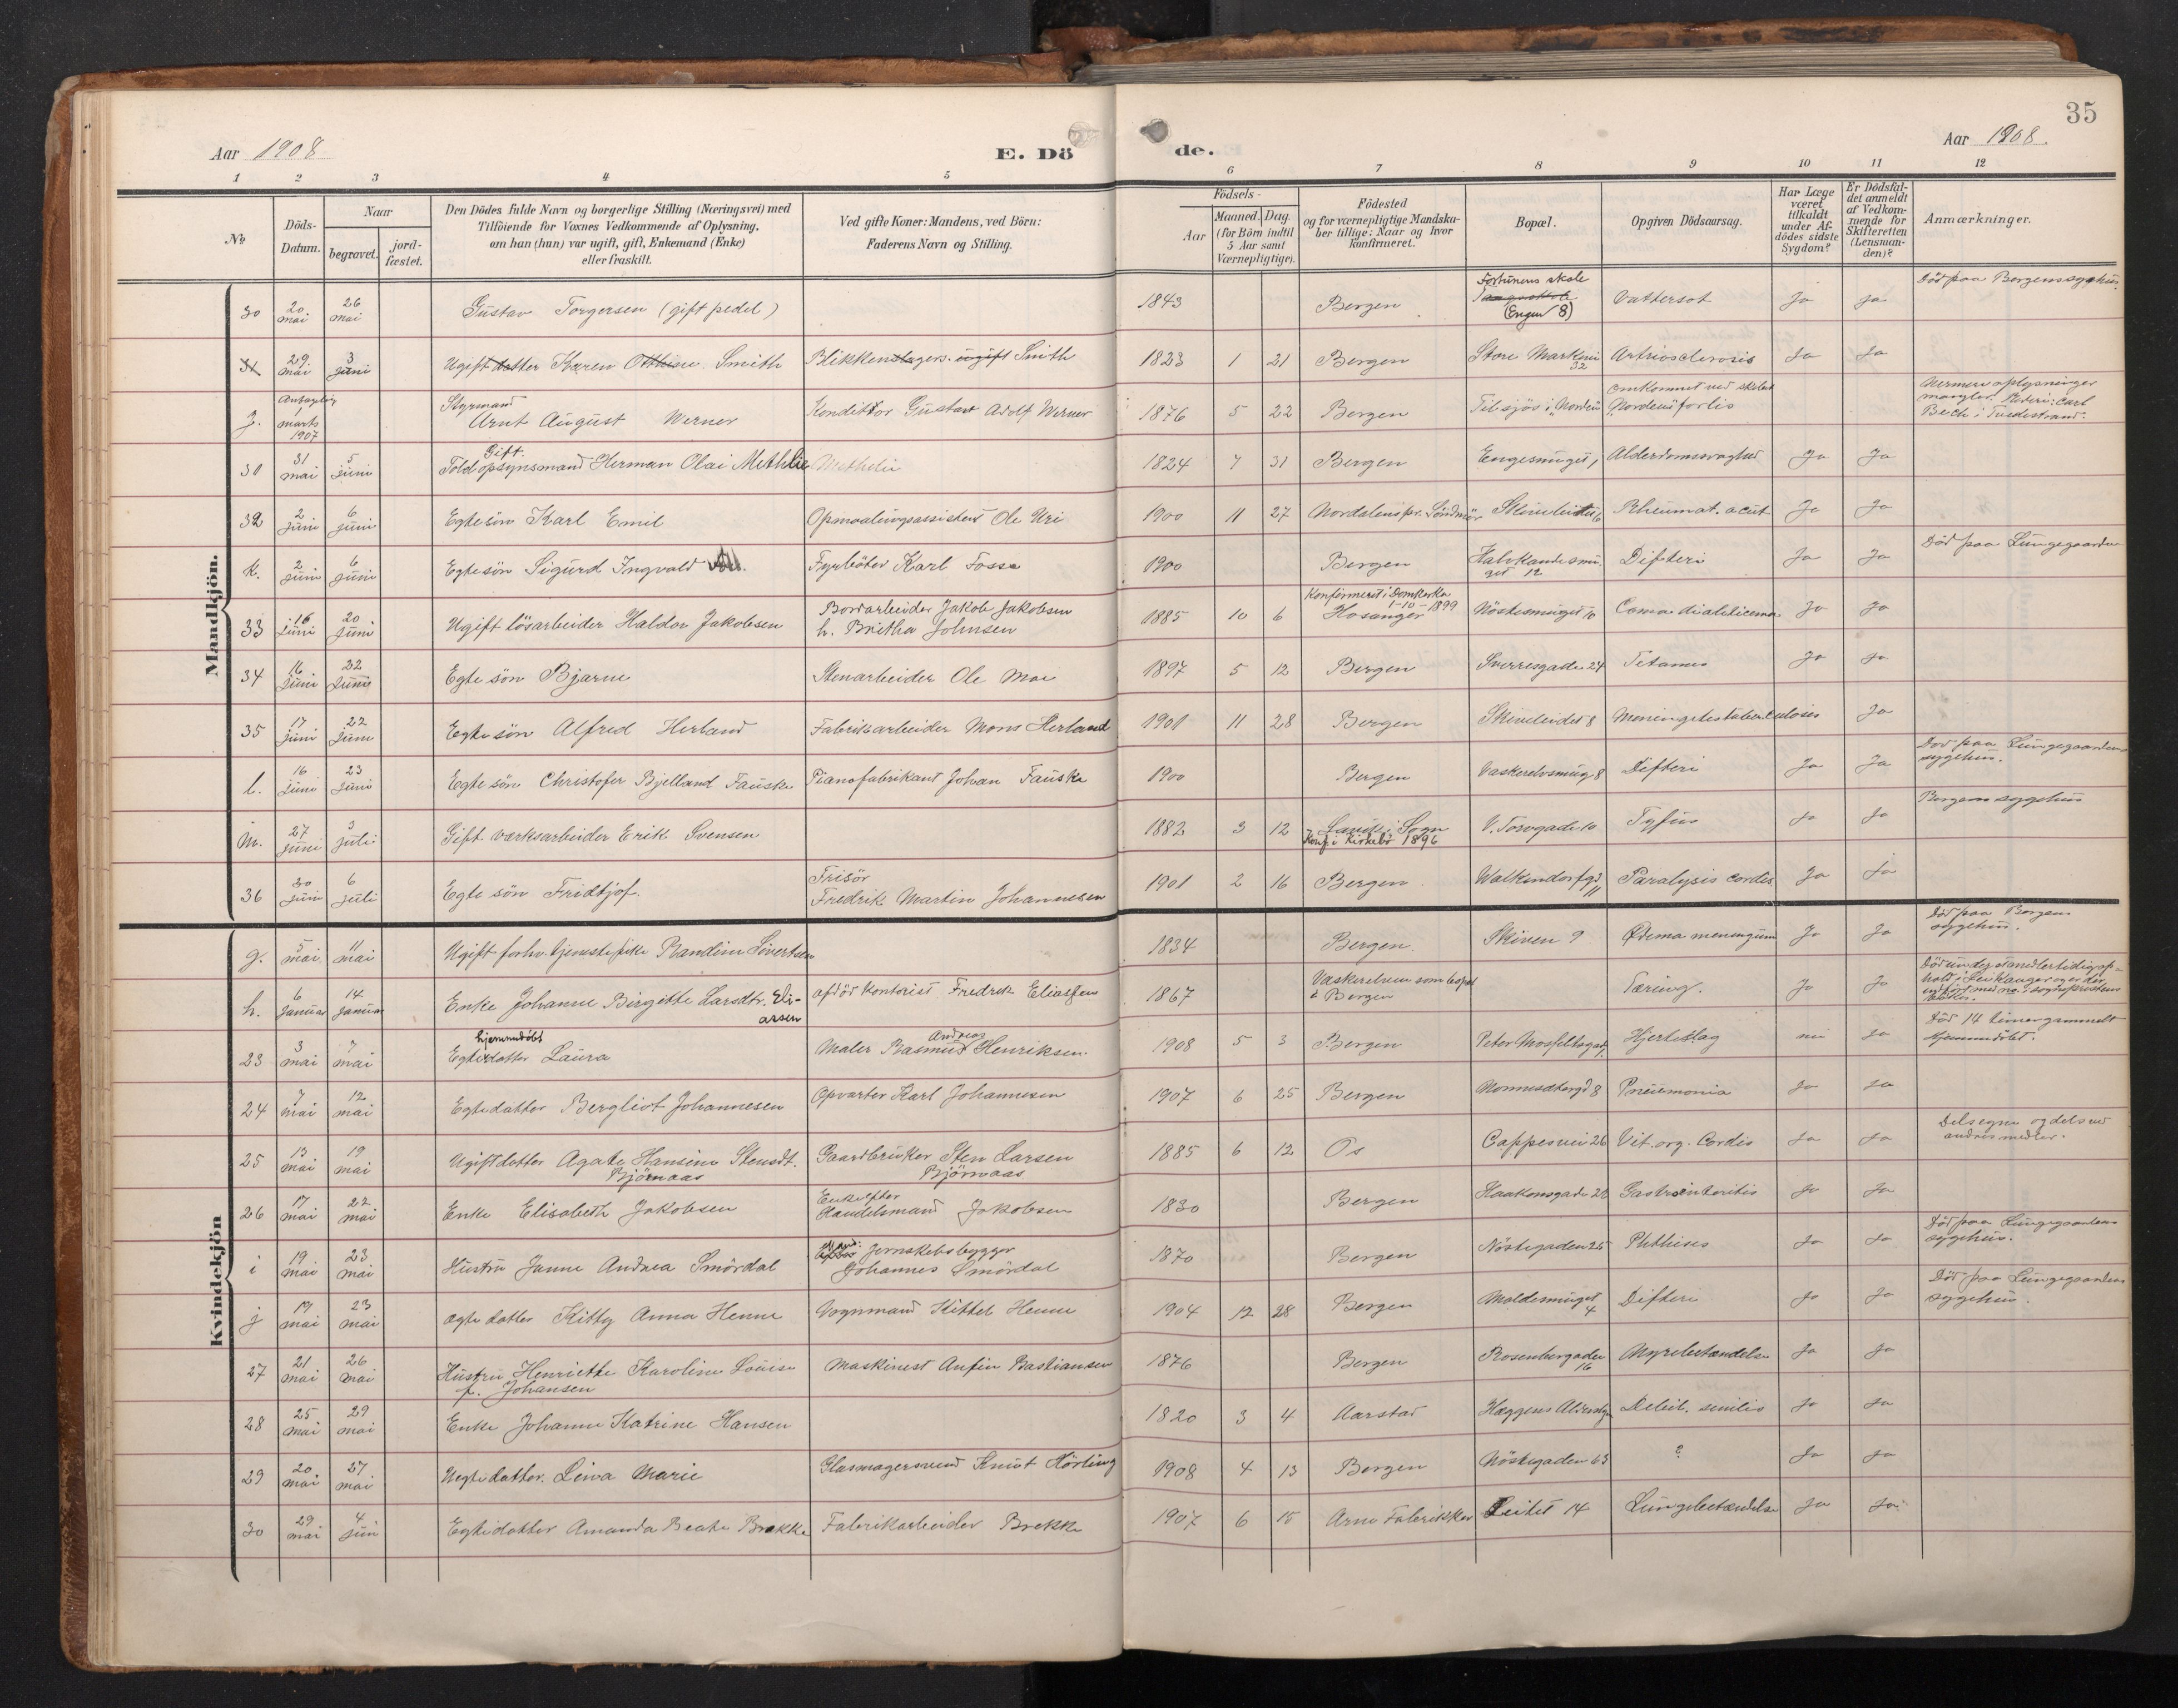 35
Aar 1908
E. Dö
de.
Aar 1908.
1 2 3 4 5 6 7 8 9 10 11 12
No
Döds-Datum.
Naar
begravet.
jord-fæstet.
Den Dödes fulde Navn og borgerlige Stilling (Næringsvei) med
Tilföiende for Voxnes Vedkommende af Oplysning,
om han (hun) var ugift, gift, Enkemand (Enke)
eller fraskilt.
Ved gifte Koner: Mandens, ved Börn:
Faderens Navn og Stilling.
Födsels-
Aar
Maaned. Dag.
(for Börn indtil
5 Aar samt
Værnepligtige).
Födested
og for værnepligtige Mandska-
ber tillige: Naar og hvor
Konfirmeret.
Bopæl.
Opgiven Dödsaarsag.
Har Læge
været
tilkaldt
under Af-
dödes sidste
Sygdom?
Er Dödsfal-
det anmeldt
af Vedkom-
mende for
Skifteretten
(Lensman-
den)?
Anmærkninger.
Mandkjön.
30 20 mai 26 mai Gustav Torgersen (gift pedel) 1843 Bergen Fortunens skole (Engen 8) Vattersot Ja Ja Död paa Bergens sygehus.
31 29 mai 3 juni Ugift datter Karen Othine Smith Blikkenslagers ugift Smith 1823 1 21 Bergen Store Markevei 32 Artriosclerosis Ja Ja
J. Antagelig 1 marts 1907 Styrmand Arnt August Werner Konditor Gustav Adolf Werner 1876 5 22 Bergen Tilsjös i "Norden" omkommet ved skibet "Nordens" forlis Nærmere oplysninger mangler. Rederi: Carl Bech i Tvedestrand.
30 31 mai 5 juni Gift. Toldopsynsmand Herman Olai Methlie Methelie 1824 7 31 Bergen Engesmuget 1 Alderdomssvaghed Ja Ja
32 2 juni 6 juni Egte sön Karl Emil Opmaalingsassistent Ole Uri 1900 11 27 Nordalens pr. Söndmör Skiveleitet 6 Rheumat. acut Ja Ja
k. 2 juni 6 juni Egte sön Sigurd Ingvald Fyrböter Karl Fosse 1900 Bergen Halvkandesmuget 12 Difteri Ja Ja Död paa Lungegaarden
33 16 juni 20 juni Ugift lösarbeider Haldor Jakobsen Bordarbeider Jakob Jakobsen h. Britha Johnsen 1885 10 6 Konfirmeret i Domkirka 1-10-1899 Hosanger Nöstesmuget 10 Coma diabeticum Ja Ja
34 16 juni 22 juni Egte sön Bjarne Stenarbeider Ole Moe 1897 5 12 Bergen Sverresgade 24 Tetanus Ja Ja
35 17 juni 22 juni Egte sön Alfred Herland Fabrikarbeider Mons Herland 1901 11 28 Bergen Skiveleidet 8 Meningitis tuberculosis Ja
l. 16 juni 23 juni Egte sön Christofer Bjelland Fauske Pianofabrikant Johan Fauske 1900 Bergen Vaskerelvsmug 8 Difteri Ja Ja Död paa Lungegaardens sygehus.
m. 27 juni 3 juli Gift værksarbeider Erik Svensen 1882 3 12 Lavik i Sogn Konf. i Kirkebö 1896 V. Torvgade 10 Tyfus Ja Ja Bergens sygehus
36 30 juni 6 juli Egte sön Fridtjof. Frisör Fredrik Martin Johannesen 1901 2 16 Bergen Walkendorfgd. 11 Paralysis cordis Ja Ja
Kvindekjön
g. 5 mai 11 mai Ugift forhv. tjenestepike Randine Sivertsen 1834 Bergen. Skiven 9 Ødema meningum Ja Ja Död paa Bergens sygehus.
h. 6 januar 14 januar Enke Johanne Birgitte Larsdtr. Eliassen afdöd kontorist Fredrik Eliassen 1867 Vaskerelven som bopæl i Bergen Tæring. Ja Ja
23 3 mai 7 mai hjemmedöbt Egte datter Laura Maler Rasmus Andreas Henriksen. 1908 5 3 Bergen Peter Mosfeltsgad. Hjerteslag nei Ja Död 14 timer gammelt hjemmedöbt.
24 7 mai 12 mai Egte datter Bergliot Johannesen Opvarter Karl Johannesen 1907 6 25 Bergen Nonnesætergd 8 Pneumonia Ja Ja
25 13 mai 19 mai Ugift datter Agate Hansine Stensdt. Björnaas Gaardbruker Sten Larsen Björnaas 1885 6 12 Os Cappesvei 26 Vit. org. Cordis Ja Ja Dels egne og dels ved andres midler.
26 17 mai 22 mai Enke Elisabeth Jakobsen Enke efter Handelsmand Jakobsen 1830 Bergen Haakonsgade 28 Gastroenteritis Ja Ja
i 19 mai 23 mai Hustru Janne Andrea Smördal Jernskibsbygger Johannes Smördal 1870 Bergen Nöstegaden 25 Phthisis Ja Ja Död paa Lungegaardens sygehus.
j 19 mai 23 mai ægte datter Kitty Anna Henne Vognmand Kittel Henne 1904 12 28 Bergen Moldesmuget 4 Difteri Ja Ja Död paa Lungegaardens sygehus.
27 21 mai 26 mai Hustru Henriette Karoline Louise f. Johansen Maskinist Anfin Bastiansen 1876 Bergen Rosenbergaden 16 Nyrebetændelse Ja Ja
28 25 mai 29 mai Enke Johanne Katrine Hansen 1820 3 4 Aarstad Hæggens Debil. senilis Ja Ja
29 20 mai 27 mai Uegte datter. Liva Marie Glasmagersvend Knut Hörting 1908 4 13 Bergen Nöstegaden 63 ? Ja Ja
30 29 mai 4 juni Egte datter Amanda Beate Brekke Fabrikarbeider Brekke 1907 6 15 Arne Fabrikker Leitet 14 Lungebetændelse Ja Ja